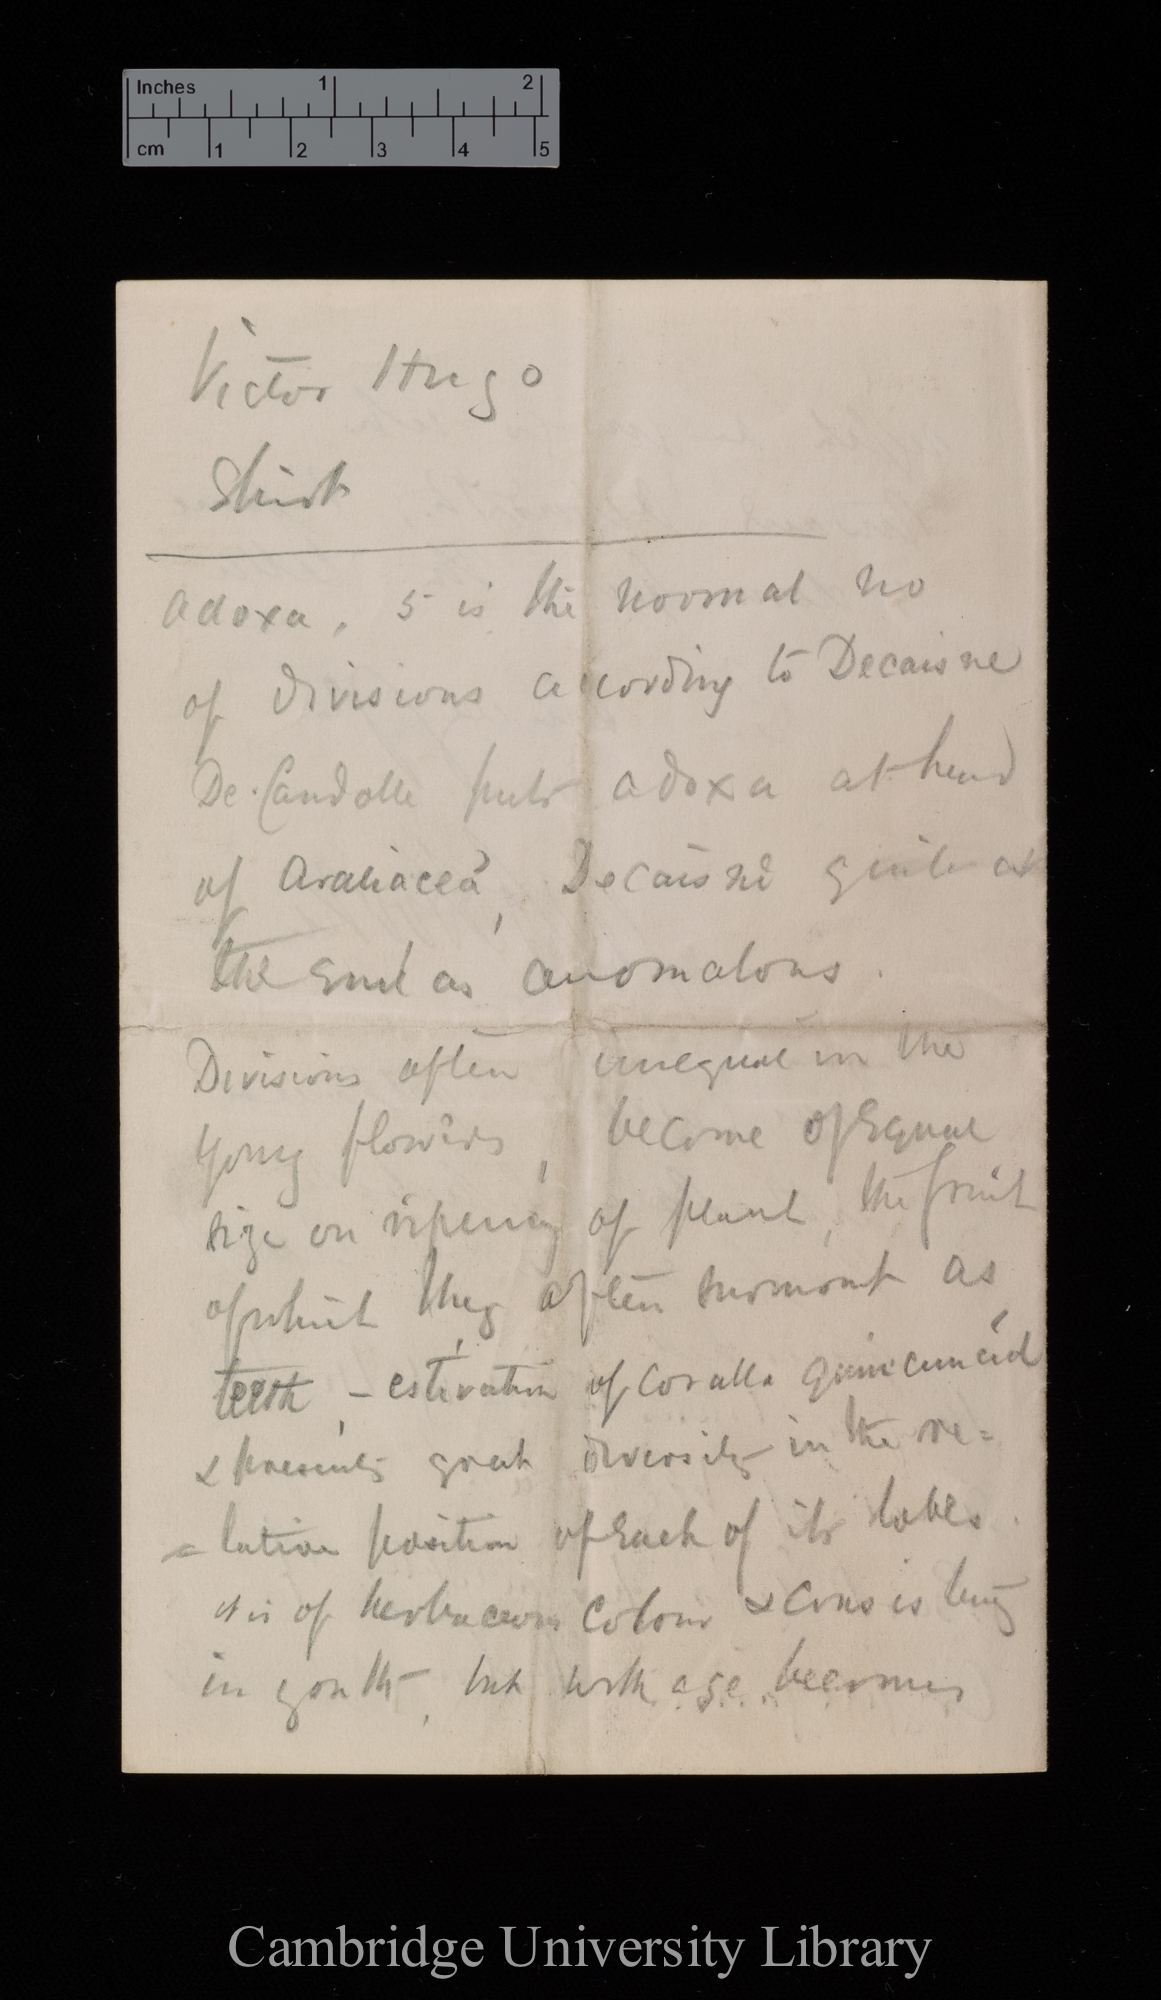 Inches 1 2
cm 1 2 3 4 5
Victor Hugo
Shirt
Adoxa, 5 is the normal no
of divisions according to Decaisne
De. Candolle puts adoxa at head
of Araliaceæ, Decaisne quite at
the end as anomalous.
Divisions often unequal in the
young flowers, become of equal
size on ripening of plant, the fruit
of which they often surmount as
teeth, – estivation of Corolla quincuncial
& presents great diversity in the re=
=lative position of each of its lobes.
it is of herbaceous colour & consistency
in youth, but with age becomes
Cambridge University Library